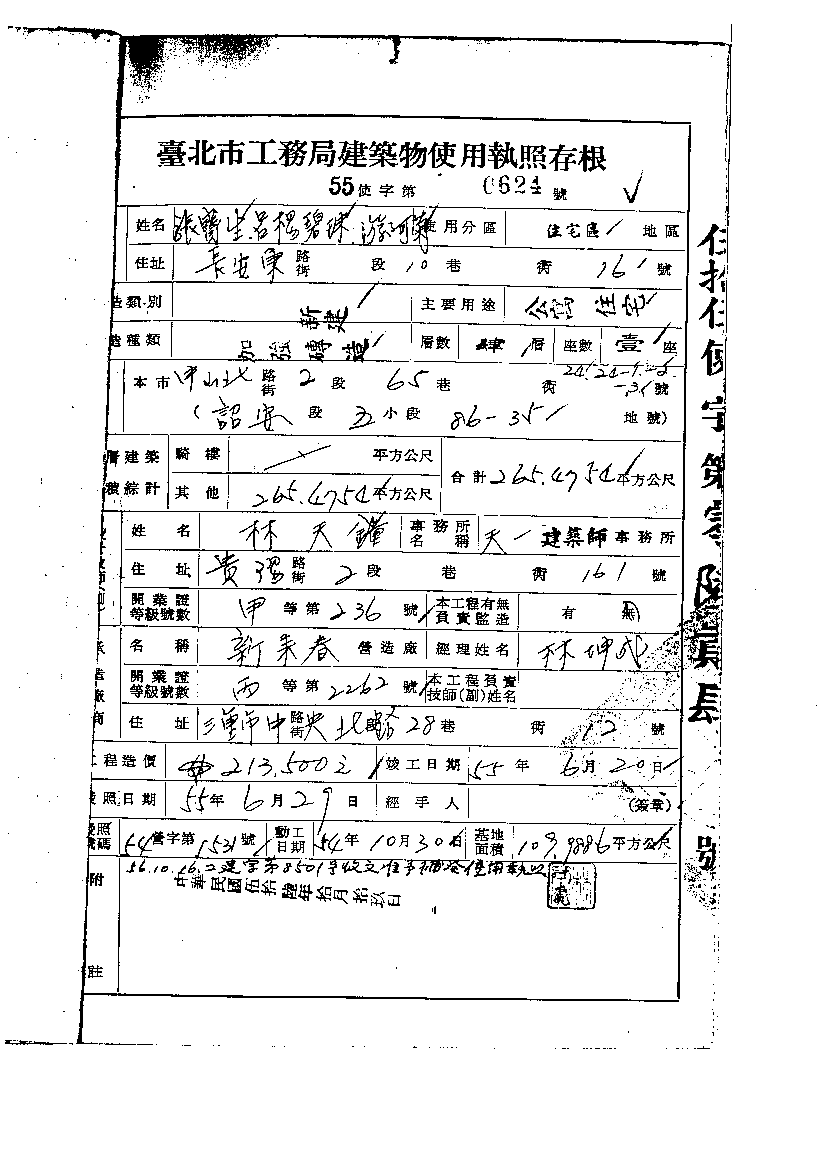 臺北市工務局建築物使用執照存根
55使字第 0624 號
姓名 使用分區 住宅區 地區
住址 長安東 路街 段 10 巷 街 161 號
造類別 新建 主要用途 公寓 住宅
造種類 加強磚造 層數 肆 層 座數 壹 座
本市 中山北 路街 2 段 65 巷 街 號
(詔安 段 五 小段 86-35 地號)
層建築 騎樓 平方公尺 合計 265.4754 平方公尺
積綜計 其他 265.4754 平方公尺
姓名 林天鐘 事務所名稱 天一 建築師事務所
住址 貴陽 路街 2 段 巷 街 161 號
開業證等級號數 甲 等第 236 號 本工程有無負責監造 有 無
名稱 新來春 營造廠 經理姓名 林坤武
開業證等級號數 丙 等第 2262 號 本工程負責技師(副)姓名
造廠商 住址 三重市中央北路 路街 段 28 巷 街 12 號
工程造價 213,500元 竣工日期 55 年 6 月 20 日
發照日期 55 年 6 月 29 日 經手人 (簽章)
號碼 54 營字第 1531 號 動工日期 54 年 10 月 30 日 基地面積 109.9886 平方公尺
附註
56.10.16.2建字第8501號收文准予補發使用執照
中華民國伍拾陸年拾月拾玖日
伍拾伍使字第零陸貳肆號